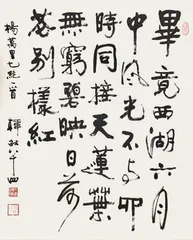 畢竟西湖六月
中風光不与四
時同接天蓮葉
無窮碧映日荷
花別樣紅
楊萬里七絕一首